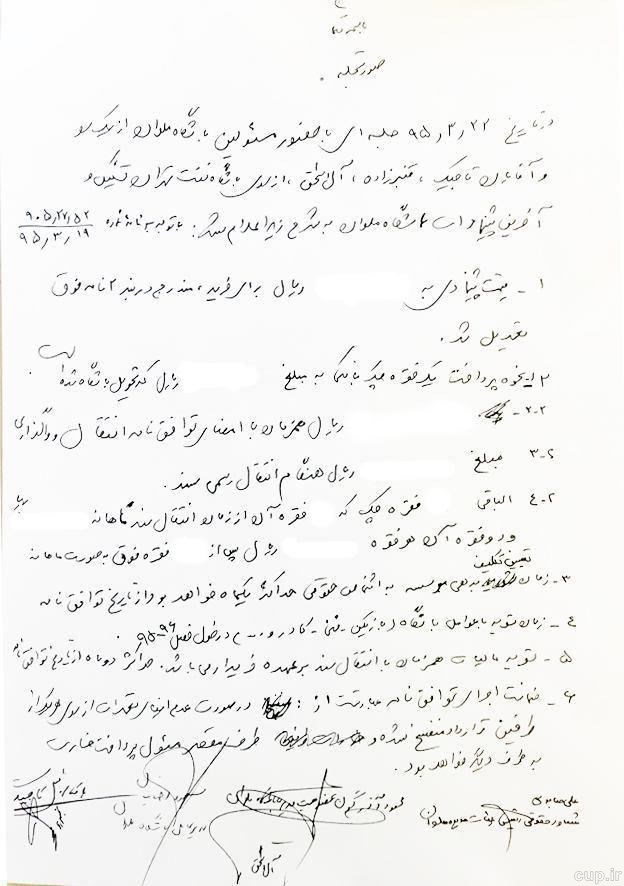 باسمه تعالی
صورتجلسه
در تاریخ ۹۵٫۳٫۲۲ جلسه ای با حضور مسئولین باشگاه ملوان از یک سو
و آقایان تاجیک ، قنبرزاده ، آل اسحق ، از سوی باشگاه نفت تهران تشکیل و
آخرین پیشنهادات باشگاه ملوان به شرح زیر اعلام شد: باتوجه به نامه شماره
۹۵٫۳٫۱۹
۱ - قیمت پیشنهادی به ریال برای خرید ، مندرج در بند ۲ نامه فوق
تعدیل شد .
۲- نحوه پرداخت یک فقره چک بانکی به مبلغ ریال که تحویل باشگاه شد
۲-۲ ریال همزمان با امضای توافق نامه انتقال و واگذاری
۲-۳ مبلغ ریال هنگام انتقال رسمی سند .
۲-۴ الباقی فقره چک که فقره آن از زمان انتقال سند ماهانه
و دو فقره آن هر فقره ریال پس از فقره فوق به صورت ماهانه
تعیین تکلیف
۳- زمان بدهی موسسه به اشخاص حقوقی حداکثر یکماه خواهد بود از تاریخ توافق نامه
۴ - زمان تسویه با عوامل باشگاه (بازیکن - فنی - کادر و ... ) در طول فصل ۹۶-۹۵ .
۵ - تسویه مالیات همزمان با انتقال سند بر عهده خریدار می باشد . حداکثر دو ماه از تاریخ توافق نامه
۶ - ضمانت اجرای توافق نامه عبارتست از : در صورت عدم ایفای تعهدات از سوی هریک از
طرفین قرارداد منفسخ شده و طرف مقصر مسئول پرداخت خسارت
به طرف دیگر خواهد بود .
علی صابری
مشاور حقوقی هیات مدیره ملوان
مدیرعامل باشگاه ملوان
آل اسحق
cup.ir